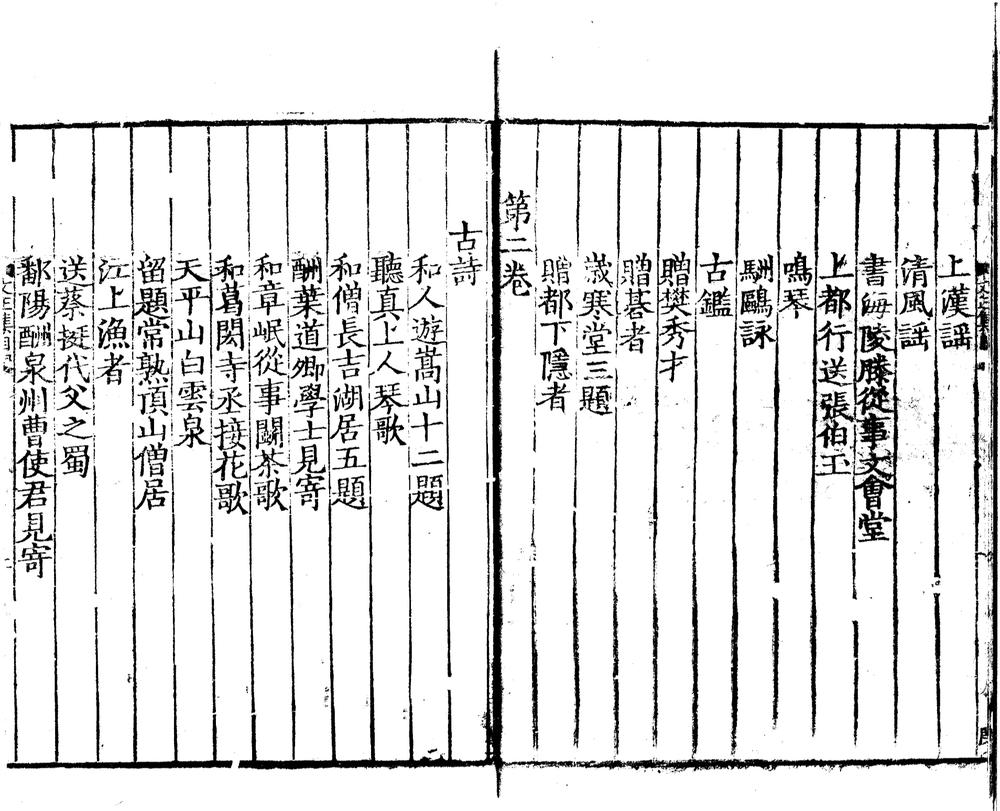 上漢謠
清風謡
書海陵滕從事文會堂
上都行送張伯玉
鳴琴
馴鷗詠
古鑑
贈樊秀才
贈碁者
歲寒堂三題
贈都下隱者
第二卷
古詩
和人遊嵩山十二題
聽真上人琴歌
和僧長吉湖居五題
酬葉道卿學士見寄
和章岷從事鬬茶歌
和葛閎寺丞接花歌
天平山白雲泉
留題常熟頂山僧居
江上漁者
送蔡挺代父之蜀
鄱陽酬泉州曹使君見寄